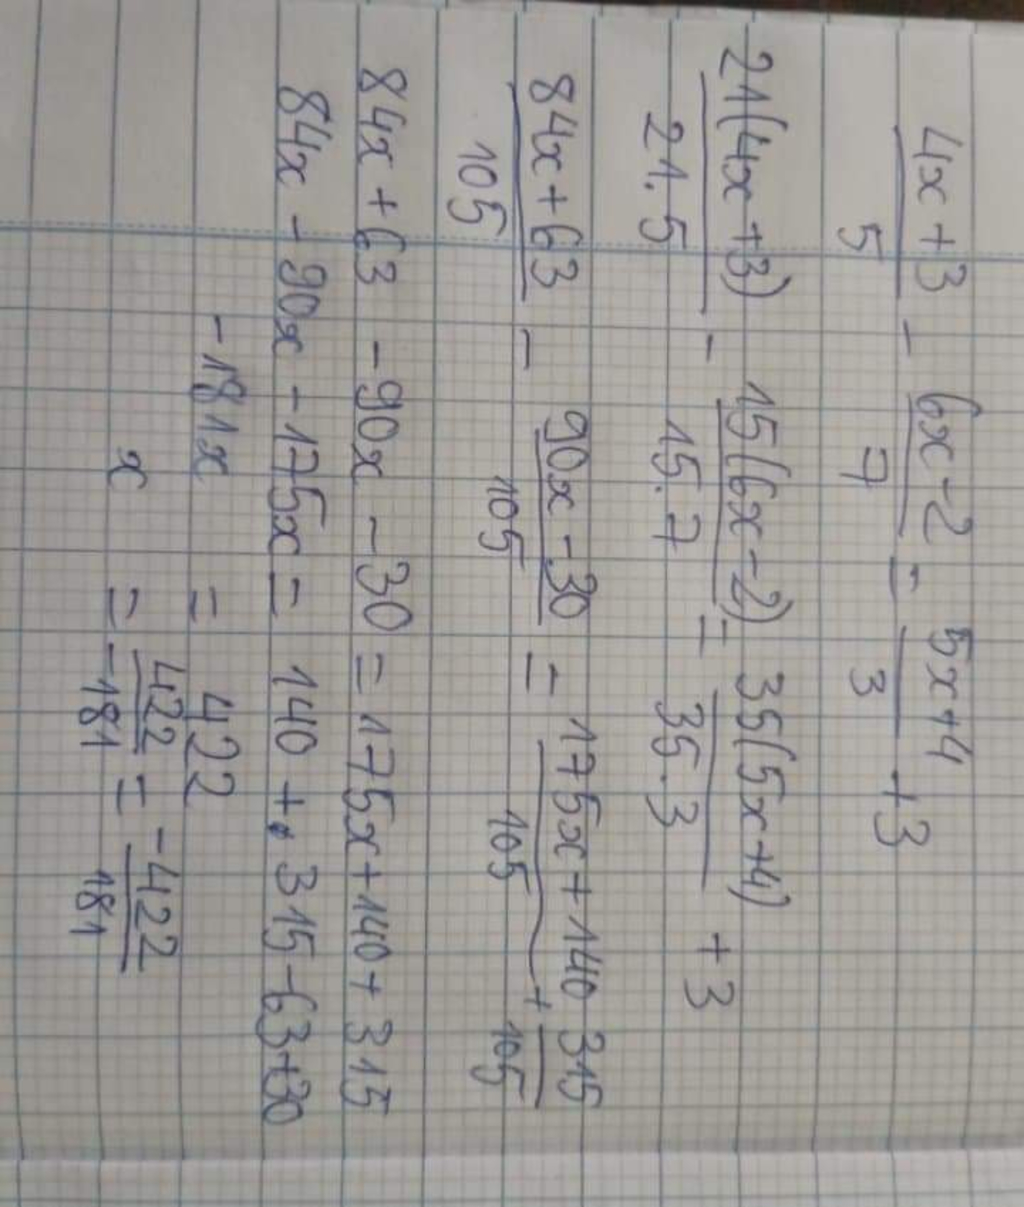 4x+3/5 - 6x-2/7 = 5x+4/3 +3
21(4x+3)/21.5 - 15(6x-2)/15.7 = 35(5x+4)/35.3 +3
84x+63/105 - 90x-30/105 = 175x+140/105 + 315/105
84x+63 -90x -30 = 175x+140+315
84x - 90x -175x = 140 + 315-63+30
-181x = 422
x = 422/-181 = -422/181